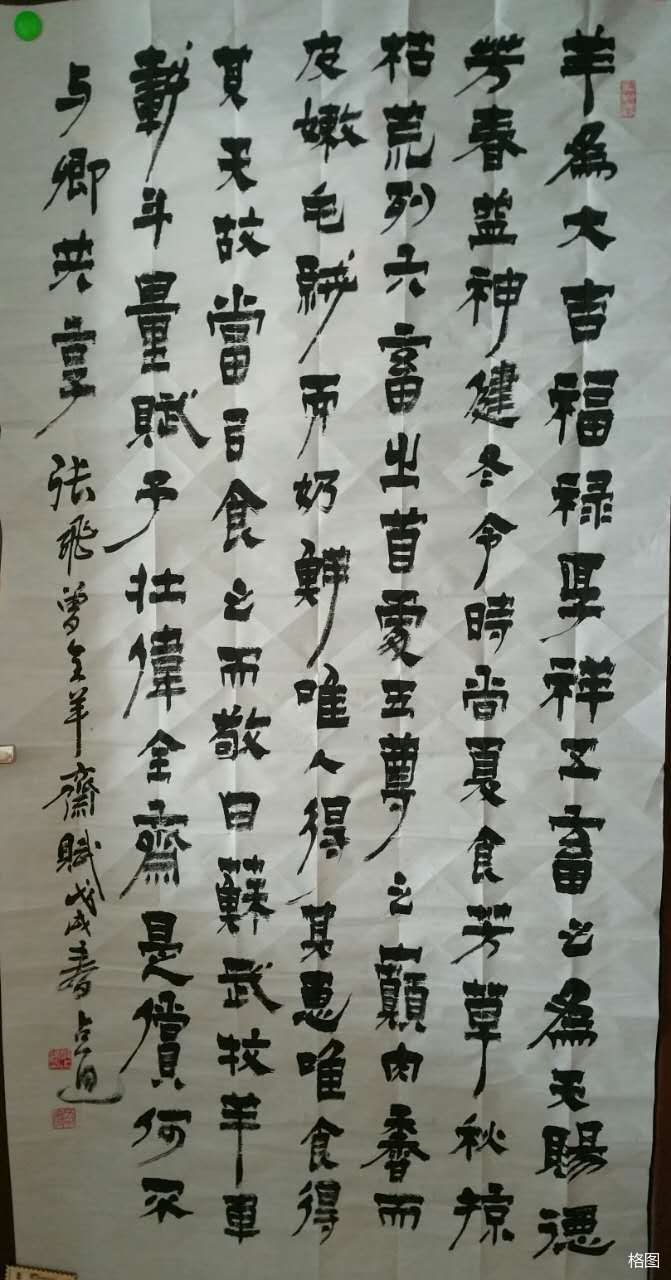 羊為大吉福禄呈祥五畜之為天賜德
芳春益神健冬令時尚夏食芳草秋掠
枯荒列六畜之首處五尊之巔肉香而
皮嫩毛絨而奶鮮唯人得其惠唯食得
其天故當司食之而敬曰蘇武牧羊車
載斗量賦予壮偉全齋是償何不
与卿共享
张飛曾全羊齋賦戊戌春
格图